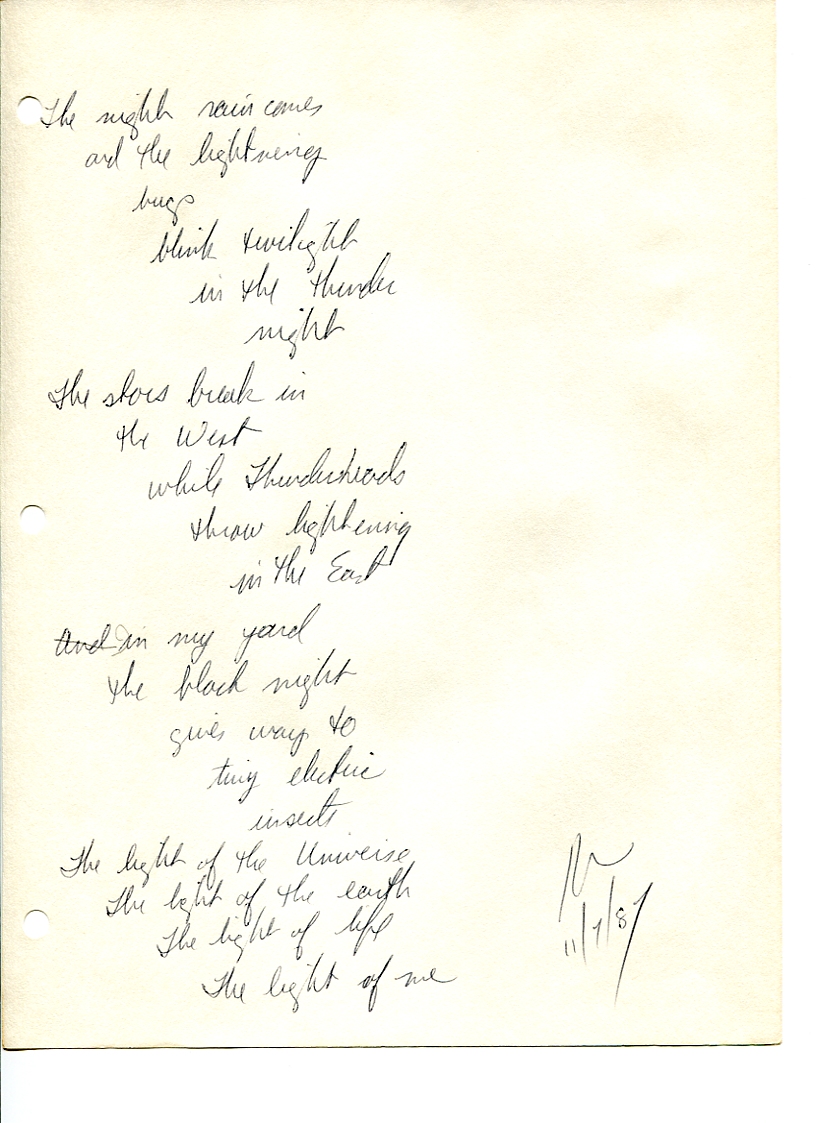 The night rain comes
and the lightnening
bugs
blink twilight
in the thunder
night
The stars break in
the West
while Thunderheads
throw lightening
in the East
And in my yard
the black night
gives way to
tiny electric
insects
The light of the Universe
The light of the earth
The light of life
The light of me
11/7/87